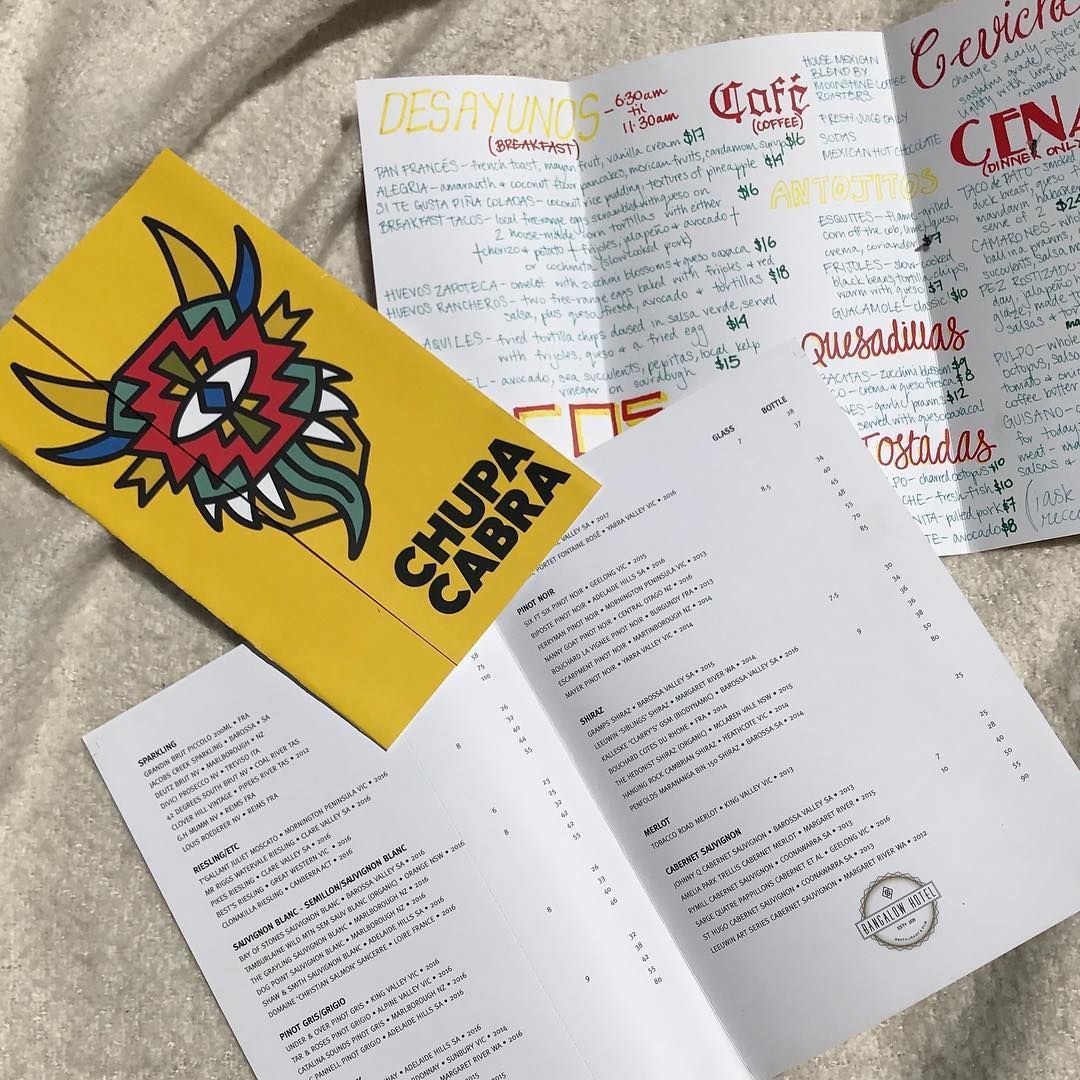 CHUPA
CABRA
DESAYUNOS
(BREAKFAST)
-6:30am
til
11:30am
PAN FRANCÉS - french toast, mango fruit, vanilla cream $17
ALEGRIA - amaranth & coconut pancakes, mexican fruits, cardamom syrup $16
SI TE GUSTA PIÑA COLADAS - coconut rice pudding, textures of pineapple $14
BREAKFAST TACOS - local free-range eggs scrambled with queso on $16
2 house-milled corn tortillas with either
chorizo & potato + frijoles, jalapeño & avocado
or cochinita (slow cooked pork)
HUEVOS ZAPOTECA - omelet with zucchini blossoms & queso oaxaca $16
HUEVOS RANCHEROS - two free-range eggs baked with frijoles & red
salsa, plus queso fresca, avocado & tortillas $18
AQUILES - fried tortilla chips doused in salsa verde, served
with frijoles, queso & a fried egg $14
avocado, sea succulents, pepitas, local kelp
vinegar on sourdough $15
Café
(COFFEE)
HOUSE MEXICAN
BLEND BY
MOONSHINE COFFEE
ROASTERS
FRESH JUICE DAILY
SODAS
MEXICAN HOT CHOCOLATE
ANTOJITOS
ESQUITES - flame grilled
corn off the cob, lime, queso,
crema, coriander $7
FRIJOLES - slow cooked
black beans, tortilla chips,
warm with queso $7
GUACAMOLE - classic $10
Quesadillas
zucchini blossom $9
crema & queso fresca $8
garlic prawns $12
served with queso oaxaca
Tostadas
charred octopus $10
fresh fish $10
pulled pork $7
avocado $8
Ceviche
changes daily - fresh
sashimi grade fish
lightly with lime juice
coriander &
CENA
(DINNER ONLY
TACO de PATO - smoked
duck breast, queso
mandarin habanero
serve of 2
CAMARONES
ball ina prawns,
succulents, salsa
PEZ ROSTIZADO
day, jalapeño
glaze, made
salsas & tort
PULPO - whole
octopus, salsa
tomato &
coffee butter
GUISANO
for today
meat
salsas &
(¡ask
GLASS BOTTLE
VALLEY SA • 2017
PORTET FONTAINE ROSE • YARRA VALLEY VIC • 2016
PINOT NOIR
SIX FT SIX PINOT NOIR • GEELONG VIC • 2015
RIPOSTE PINOT NOIR • ADELAIDE HILLS SA • 2016
FERRYMAN PINOT NOIR • MORNINGTON PENINSULA VIC • 2013
NANNY GOAT PINOT NOIR • CENTRAL OTAGO NZ • 2016
BOUCHARD LA VIGNEE PINOT NOIR • BURGUNDY FRA • 2013
ESCARPMENT PINOT NOIR • MARTINBOROUGH NZ • 2014
MAYER PINOT NOIR • YARRA VALLEY VIC • 2014
SHIRAZ
GRAMPS SHIRAZ • BAROSSA VALLEY SA • 2015
LEEUWIN "SIBLINGS" SHIRAZ • MARGARET RIVER WA • 2014
KALLESKE "CLARRY'S" GSM (BIODYNAMIC) • BAROSSA VALLEY SA • 2016
BOUCHARD COTES DU RHONE • FRA • 2014
THE HEDONIST SHIRAZ (ORGANIC) • MCLAREN VALE NSW • 2015
HANGING ROCK CAMBRIAN SHIRAZ • HEATHCOTE VIC • 2014
PENFOLDS MARANANGA BIN 150 SHIRAZ • BAROSSA SA • 2014
MERLOT
TOBACCO ROAD MERLOT • KING VALLEY VIC • 2013
CABERNET SAUVIGNON
JOHNNY Q CABERNET SAUVIGNON • BAROSSA VALLEY SA • 2013
AMELIA PARK TRELLIS CABERNET MERLOT • MARGARET RIVER • 2015
RYMILL CABERNET SAUVIGNON • COONAWARRA SA • 2013
SARGE QUATRE PAPILLONS CABERNET ET AL • GEELONG VIC • 2016
ST HUGO CABERNET SAUVIGNON • COONAWARRA SA • 2013
LEEUWIN ART SERIES CABERNET SAUVIGNON • MARGARET RIVER WA • 2012
BANGALOW HOTEL
SPARKLING
GRANDIN BRUT PICCOLO 200ML • FRA
JACOBS CREEK SPARKLING • BAROSSA • SA
DEUTZ BRUT NV • MARLBOROUGH • NZ
DIVICI PROSECCO NV • TREVISO ITA
42 DEGREES SOUTH BRUT NV • COAL RIVER TAS
CLOVER HILL VINTAGE • PIPERS RIVER TAS • 2012
G.H MUMM NV • REIMS FRA
LOUIS ROEDERER NV • REIMS FRA
RIESLING/ETC
T'GALLANT JULIET MOSCATO • MORNINGTON PENINSULA VIC • 2016
MR RIGGS WATERVALE RIESLING • CLARE VALLEY SA • 2016
PIKES RIESLING • CLARE VALLEY SA • 2016
BEST'S RIESLING • GREAT WESTERN VIC • 2016
CLONAKILLA RIESLING • CANBERRA ACT • 2016
SAUVIGNON BLANC - SEMILLON/SAUVIGNON BLANC
BAY OF STONES SAUVIGNON BLANC • BAROSSA VALLEY SA • 2016
TAMBURLAINE WILD MTN SEM SAUV BLANC (ORGANIC) • ORANGE NSW • 2016
THE GRAYLING SAUVIGNON BLANC • MARLBOROUGH NZ • 2016
DOG POINT SAUVIGNON BLANC • MARLBOROUGH NZ • 2016
SHAW & SMITH SAUVIGNON BLANC • ADELAIDE HILLS SA • 2016
DOMAINE "CHRISTIAN SALMON" SANCERRE • LOIRE FRANCE • 2016
PINOT GRIS/GRIGIO
UNDER & OVER PINOT GRIS • KING VALLEY VIC • 2016
TAR & ROSES PINOT GRIGIO • ALPINE VALLEY VIC • 2016
CATALINA SOUNDS PINOT GRIS • MARLBOROUGH NZ • 2016
PANNELL PINOT GRIGIO • ADELAIDE HILLS SA • 2016
ADELAIDE HILLS SA • 2016
SUNBURY VIC • 2014
MARGARET RIVER WA • 2016